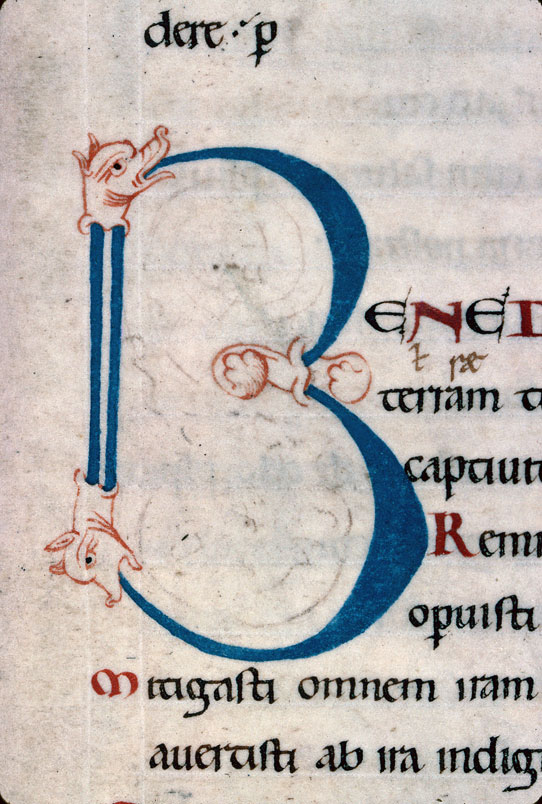 dere · p̱
BENED
ł ræ
terram t
captiuit
Remi
opuisti
Mitigasti omnem iram
auertisti ab ira indig